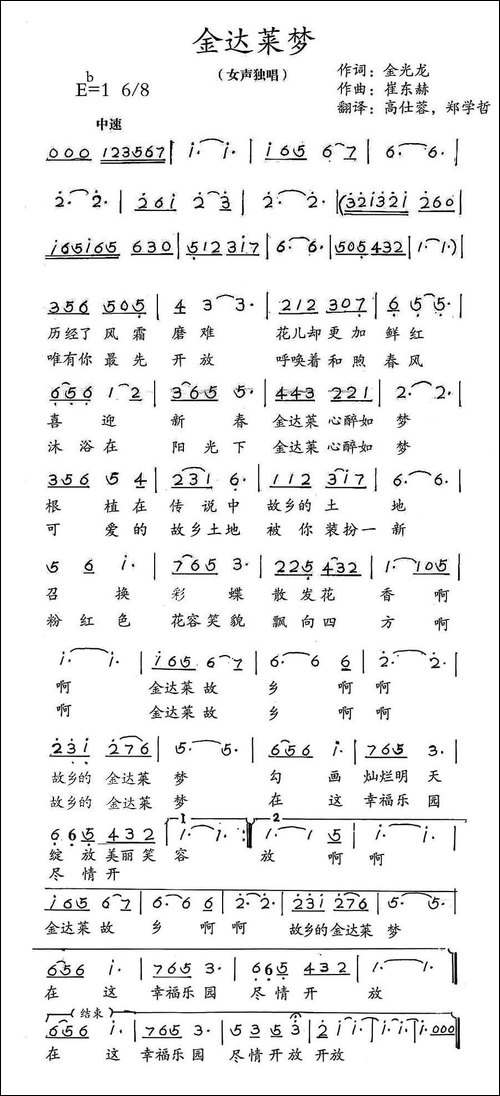 金达莱梦
（女声独唱）
作词：金光龙
作曲：崔东赫
翻译：高仕蓉，郑学哲
bE=1 6/8
中速
000 1234567 | i· i· | i65 67 | 6· 6· |
2· 2· | 26i 23 | 2· 2· | (32i32i 260 |
i65i65 630 | 5123i7 | 6· 6· | 505432 | 1· 1·) |
356 505 | 4 3 3· | 212 307 | 6 5 5· |
历经了 风霜 磨难 花儿却更加 鲜红
唯有你 最先 开放 呼唤着和煦 春风
656 1 2 | 365 5 | 443 221 | 2· 2· |
喜 迎 新 春 金达莱 心醉如 梦
沐浴在 阳光下 金达莱 心醉如 梦
356 5 4 | 231 6· | 112 3i7 | 6· 6· |
根 植在 传说中 故乡的 土 地
可 爱的 故乡土地 被你装扮一 新
5 6 i· | 765 3· | 225 432 | 1· 105 |
召 换 彩 蝶 散发花 香 啊
粉红色 花容笑貌 飘向四 方 啊
i· i· | i65 67 | 6· 6 6 | 2· 2· |
啊 金达莱故 乡 啊 啊
啊 金达莱故 乡 啊 啊
23i 276 | 5· 5· | 656 i· | 765 3· |
故乡的 金达莱 梦 勾 画 灿烂明 天
故乡的 金达莱 梦 在 这 幸福乐 园
1 2
665 432 | 1· 1· :| 1· 1 5 | i· i· |
绽放美丽笑 容 放 啊 啊
尽情开
i65 67 | 6· 6 6 | 2· 2· | 23i 276 | 5· 5· |
金达莱故 乡 啊 啊 故乡的金达莱 梦
656 i· | 765 3· | 665 432 | 1· 1· ‖
在 这 幸福乐 园 尽情开 放
结束
656 i· | 765 3· | 535 53 | 2 i i· | i· | i· | i 000 ‖
在 这 幸福乐 园 尽情开放 开放